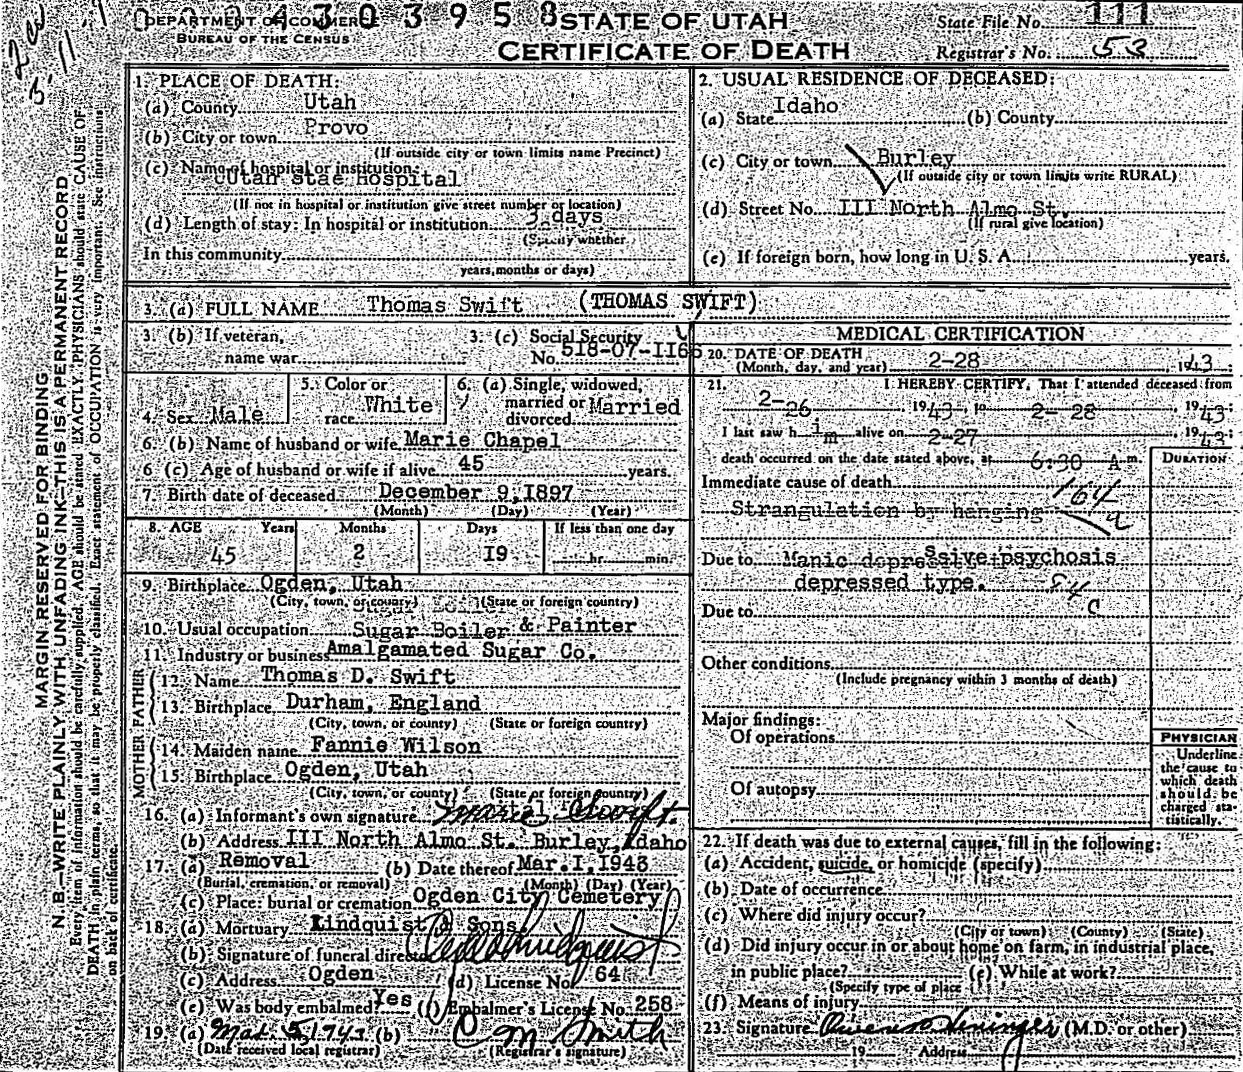 0 0 4 3 0 3 9 5 8
DEPARTMENT OF COMMERCE
BUREAU OF THE CENSUS
STATE OF UTAH
CERTIFICATE OF DEATH
State File No. 111
Registrar's No. 53
MARGIN RESERVED FOR BINDING
N. B.—WRITE PLAINLY WITH UNFADING INK—THIS IS A PERMANENT RECORD
Every item of information should be carefully supplied. AGE should be stated EXACTLY. PHYSICIANS should state CAUSE OF
DEATH in plain terms, so that it may be properly classified. Exact statement of OCCUPATION is very important. See instructions
on back of certificate.
1. PLACE OF DEATH:
(a) County Utah
(b) City or town Provo
(If outside city or town limits name Precinct)
(c) Name of hospital or institution:
Utah Stae Hospital
(If not in hospital or institution give street number or location)
(d) Length of stay: In hospital or institution 3 days
(Specify whether
In this community
years, months or days)
2. USUAL RESIDENCE OF DECEASED:
(a) State Idaho (b) County
(c) City or town Burley
(If outside city or town limits write RURAL)
(d) Street No. III North Almo St.
(If rural give location)
(e) If foreign born, how long in U. S. A. years.
3. (a) FULL NAME Thomas Swift (THOMAS SWIFT)
3. (b) If veteran,
name war
3. (c) Social Security
No. 518-07-1166
4. Sex Male
5. Color or
race White
6. (a) Single, widowed,
married or
divorced Married
6. (b) Name of husband or wife Marie Chapel
6 (c) Age of husband or wife if alive 45 years.
7. Birth date of deceased December 9, 1897
(Month) (Day) (Year)
8. AGE Years Months Days If less than one day
45 2 19 hr. min.
9. Birthplace Ogden, Utah
(City, town, or county) (State or foreign country)
10. Usual occupation Sugar Boiler & Painter
11. Industry or business Amalgamated Sugar Co.
FATHER
12. Name Thomas D. Swift
13. Birthplace Durham, England
(City, town, or county) (State or foreign country)
MOTHER
14. Maiden name Fannie Wilson
15. Birthplace Ogden, Utah
(City, town, or county) (State or foreign country)
16. (a) Informant's own signature Marie Swift.
(b) Address III North Almo St. Burley, Idaho
17. (a) Removal (b) Date thereof Mar. I, 1943
(Burial, cremation, or removal) (Month) (Day) (Year)
(c) Place: burial or cremation Ogden City Cemetery
18. (a) Mortuary Lindquist & Sons
(b) Signature of funeral director
(c) Address Ogden (d) License No. 64
(e) Was body embalmed? Yes (f) Embalmer's License No. 258
19. (a) Mar. 5, 1943 (b) C M Smith
(Date received local registrar) (Registrar's signature)
MEDICAL CERTIFICATION
20. DATE OF DEATH
(Month, day, and year) 2-28, 1943
21. I HEREBY CERTIFY, That I attended deceased from
2-26, 1943, to 2-28, 1943
I last saw him alive on 2-27, 1943
death occurred on the date stated above, at 6:30 A m. DURATION
Immediate cause of death 164 a
Strangulation by hanging
Due to Manic depressive psychosis
depressed type. 84 c
Due to
Other conditions
(Include pregnancy within 3 months of death)
Major findings:
Of operations
Of autopsy
PHYSICIAN
Underline
the cause to
which death
should be
charged sta-
tistically.
22. If death was due to external causes, fill in the following:
(a) Accident, suicide, or homicide (specify)
(b) Date of occurrence
(c) Where did injury occur?
(City or town) (County) (State)
(d) Did injury occur in or about home on farm, in industrial place,
in public place? (e) While at work?
(Specify type of place
(f) Means of injury
23. Signature (M.D. or other)
19 Address